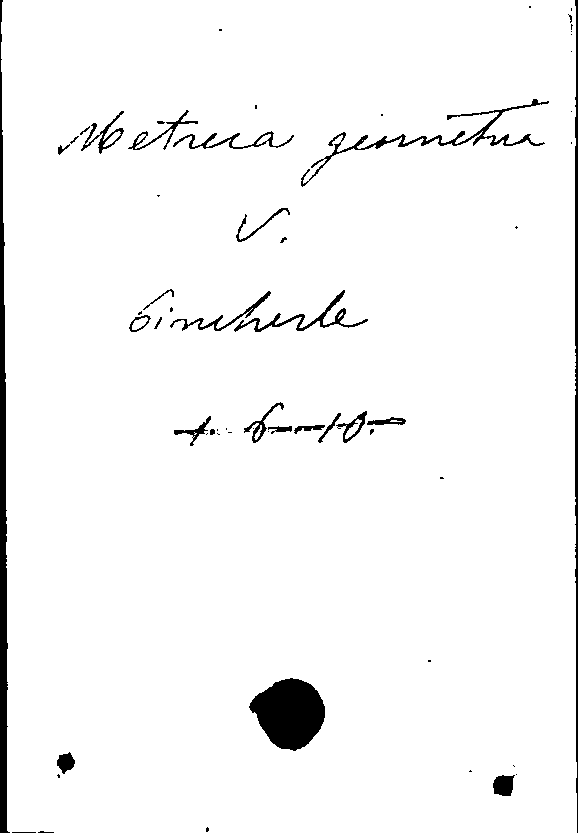 Metrica geometria
V.
Pincherle
1. 6-10.